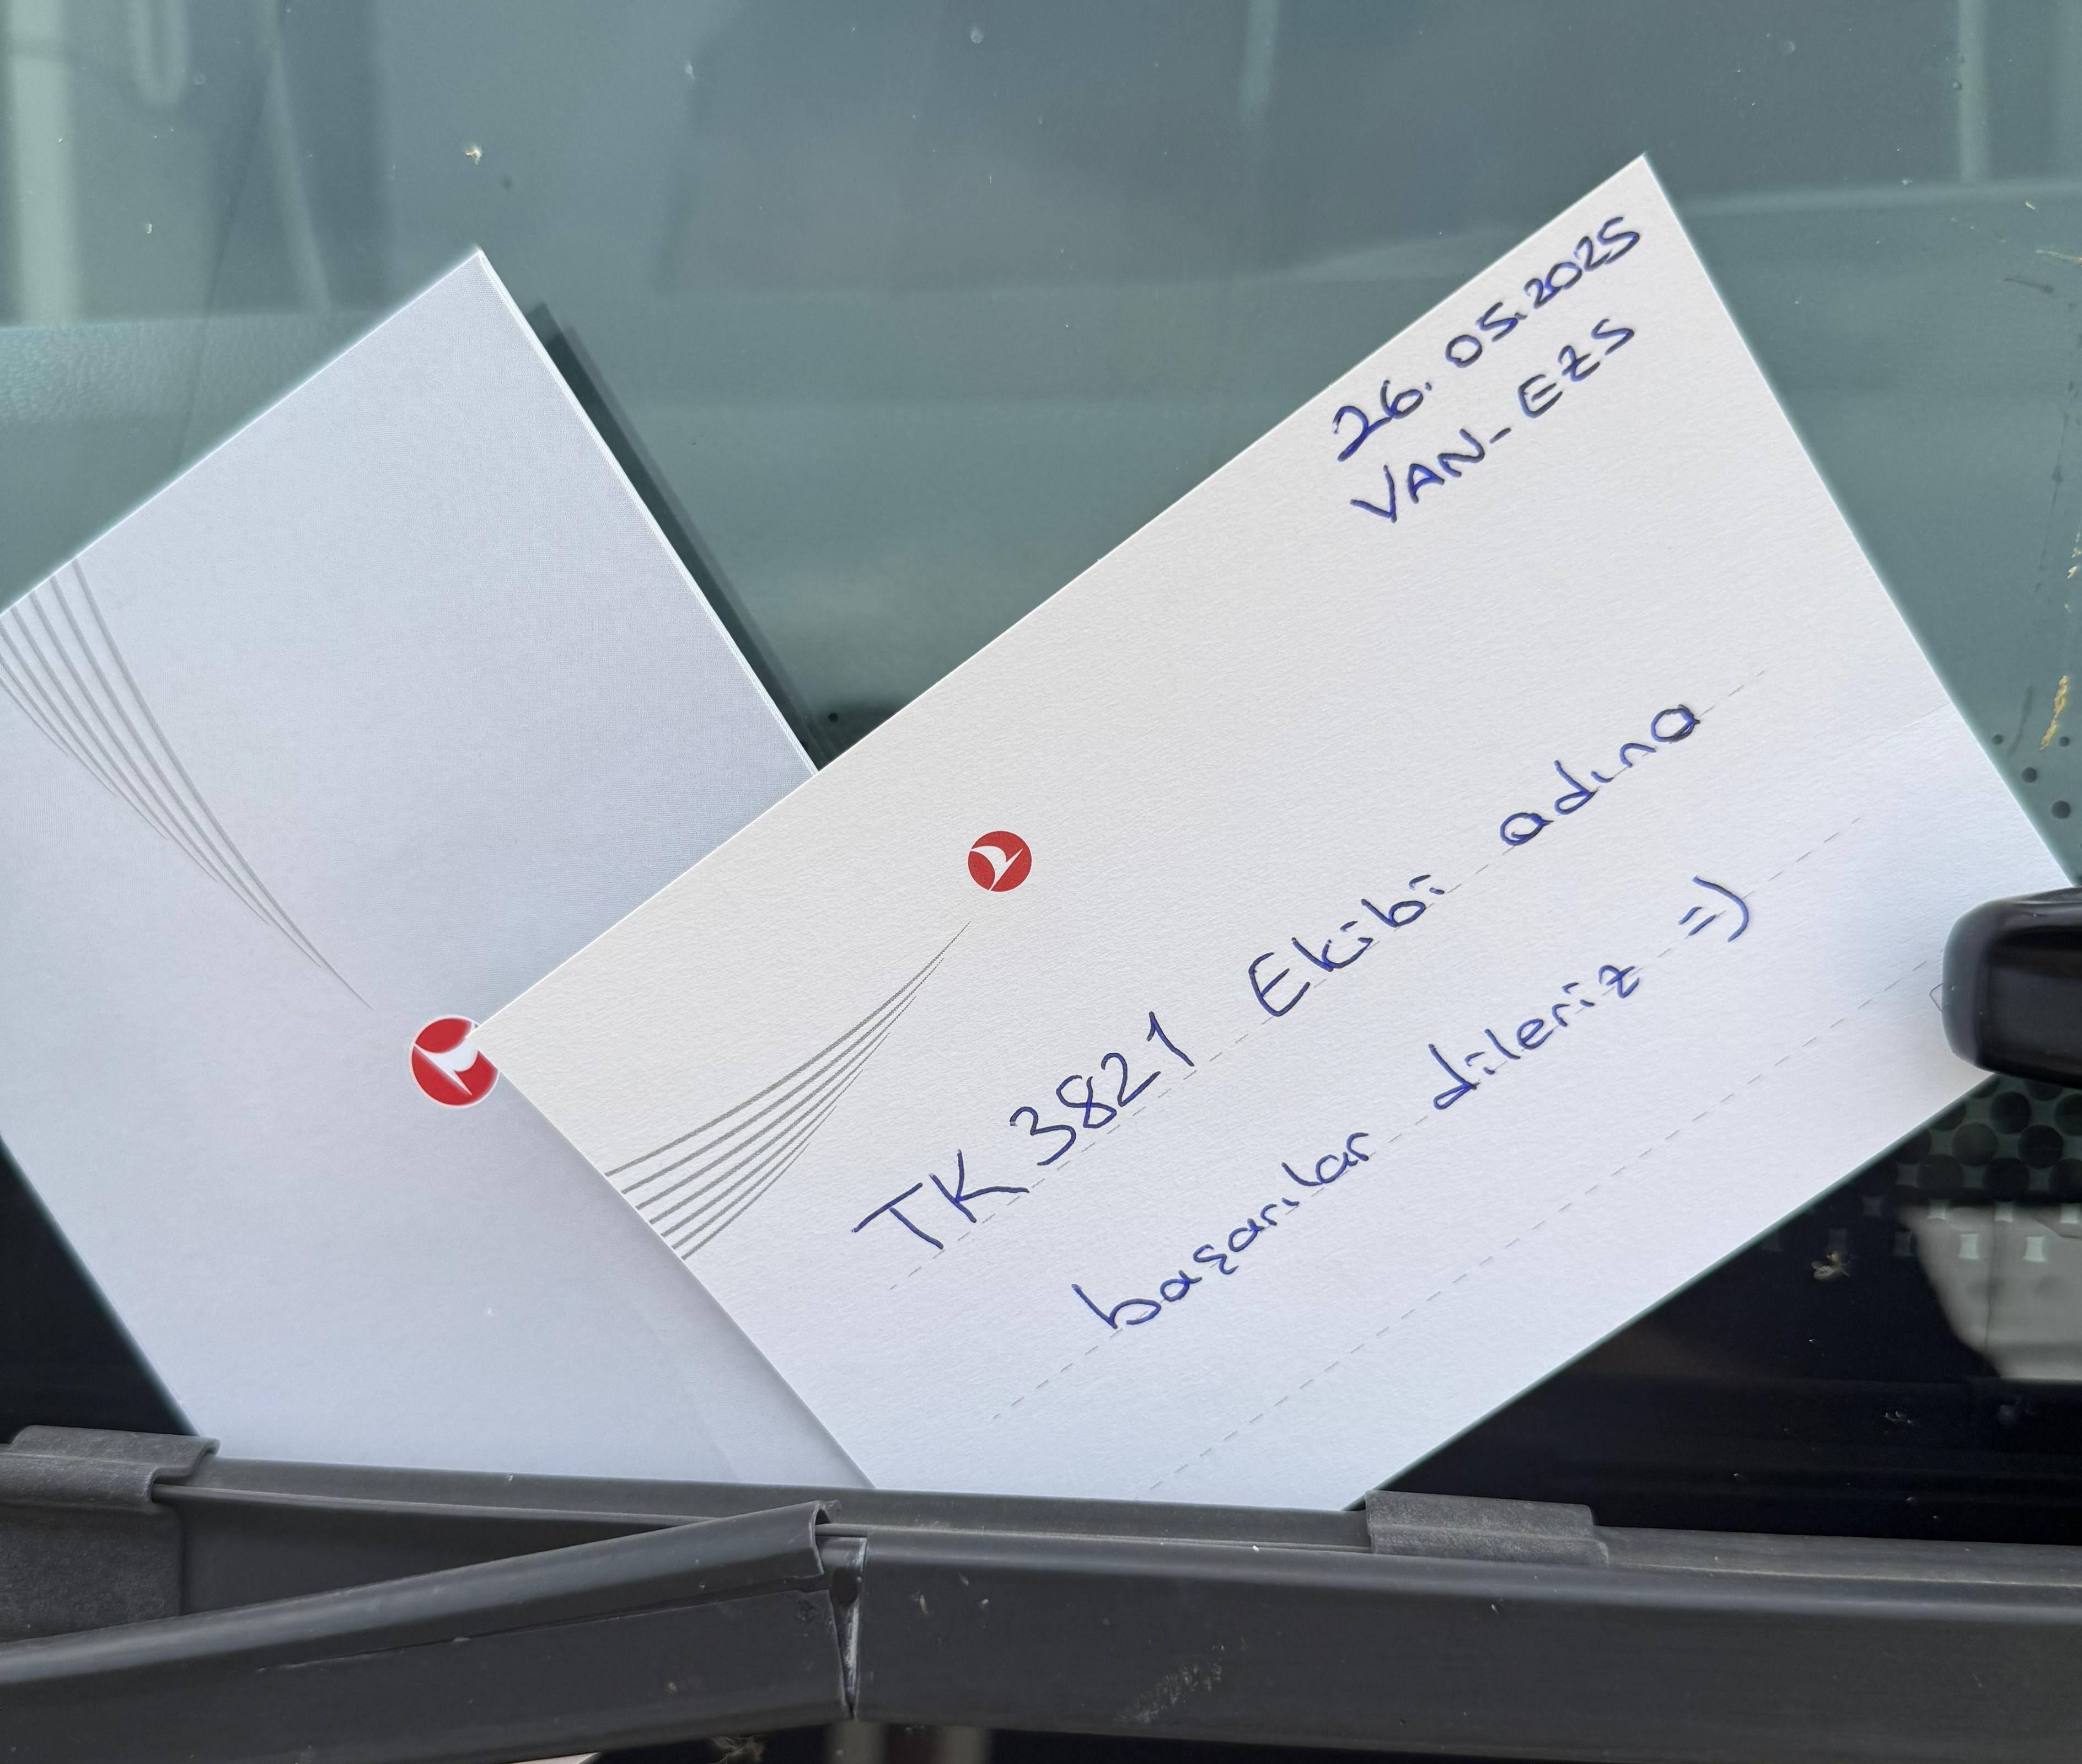 26.05.2025
VAN-EZS
TK 3821 Ekibi adına
başarılar dileriz =)